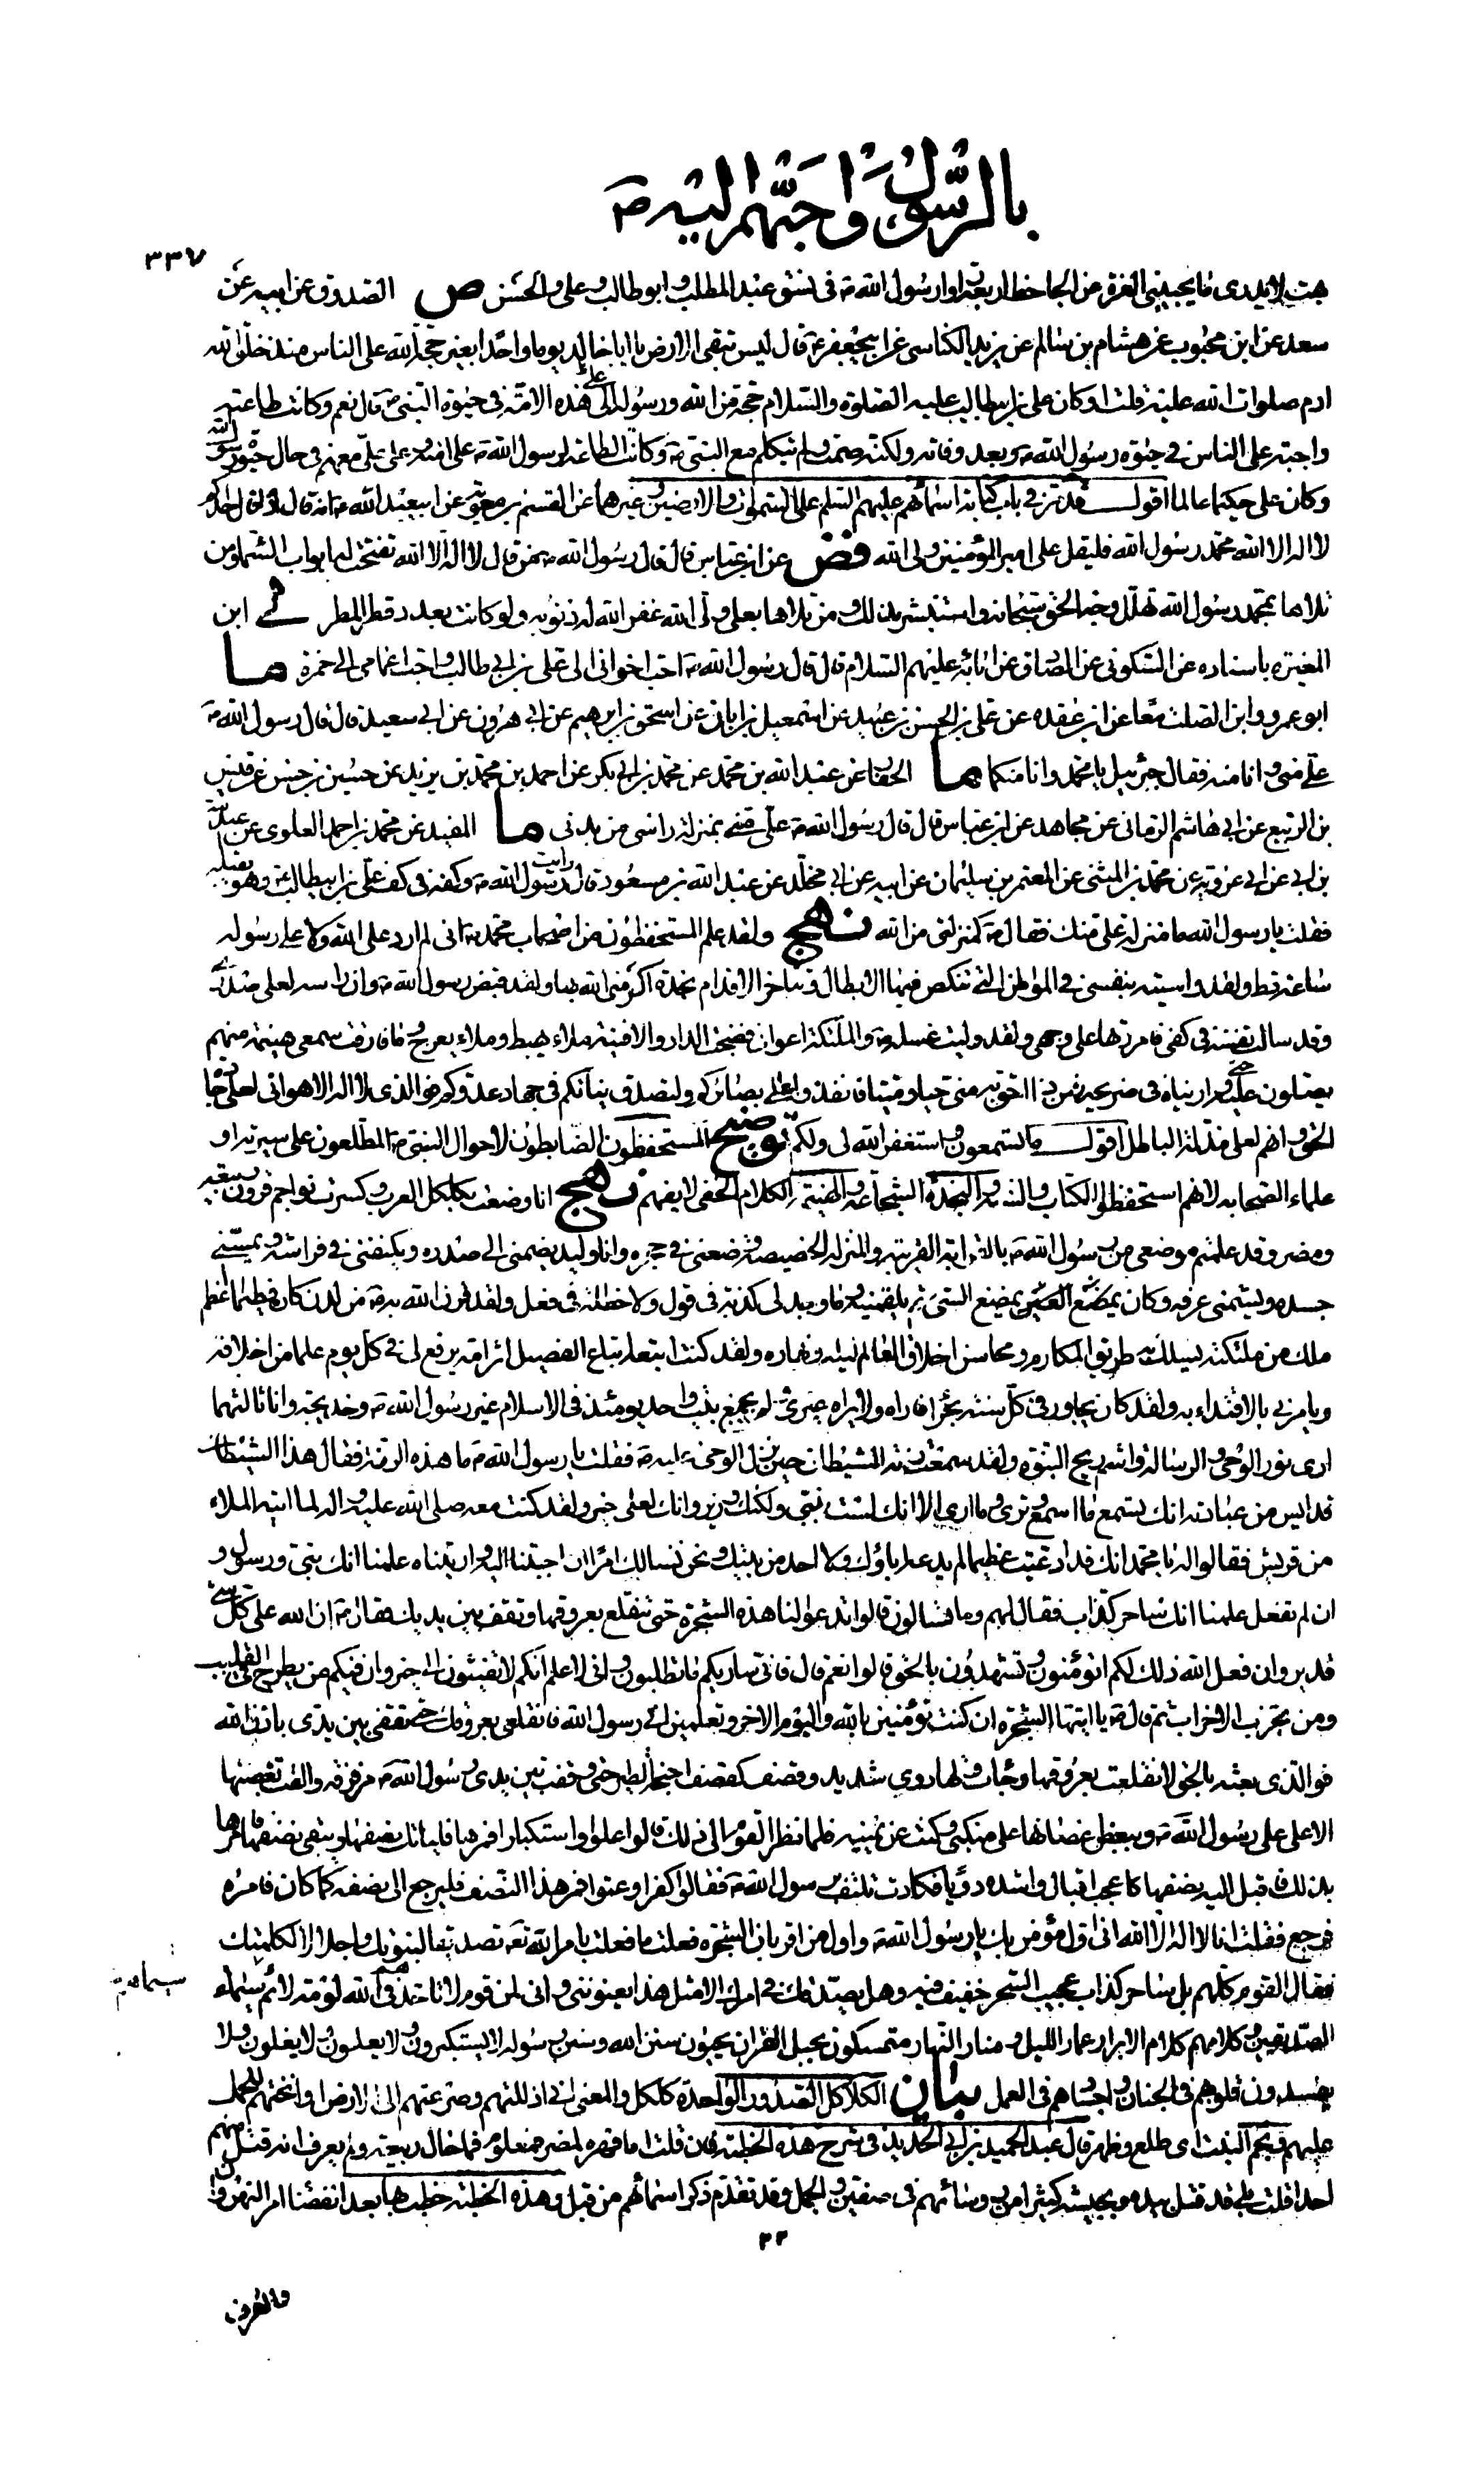 بالرسول واحبهم اليه ص
٣٣٧
لايدى فما يجيبنى الغرفة من الجاحظ اربعة او رسول الله ص فى نسق عبد المطلب وابو طالب وعلى والحسن ص الصدوق عن ابيه عن
سعد عن ابن محبوب عن هشام بن سالم عن يزيد الكناسى عن ابيجعفر ع قال ليس تبقى الارض يا ابا خالد يوما واحدا بغير حجة لله على الناس منذ خلق الله
ادم صلوات الله عليه قلت او كان على بن ابيطالب عليه الصلوة والسلام حجة من الله ورسوله الى هذه الامة فى حيوة النبى ص قال نعم وكانت طاعته
واجبة على الناس فى حيوة رسول الله ص وبعد وفاته ولكنه صمت ولم يتكلم مع النبى ص وكانت الطاعة لرسول الله ص على امته وعلى على معهم فى حال حيوة رسول الله
وكان على حكيما عالما اقول قد مر فى باب كتابة اسمائهم عليهم السلم على السموات والارضين وغيرهما عن القسم بن معوية عن ابيعبد الله ع انه قال اذا قال احدكم
لا اله الا الله محمد رسول الله فليقل على امير المؤمنين ولى الله فض عن ابن عباس قال قال رسول الله ص من قال لا اله الا الله تفتحت له ابواب السماء ومن
تلاها بمحمد رسول الله تهلل وجه الحق سبحانه واستبشر بذلك ومن تلاها بعلى ولى الله غفر الله له ذنوبه ولو كانت بعدد قطر المطر ابن
المغيره باسناده عن السكونى عن الصادق عن ابائه عليهم السلام قال قال رسول الله ص احب اخوانى الى على بن ابى طالب واحب اعمامى الى حمزة ما
ابو عمرو وابن الصلت معا عن ابن عقده عن على بن الحسن بن عبيد عن اسمعيل بن ابان عن اسحق بن ابرهيم عن ابى هرون عن ابى سعيد قال قال رسول الله ص
على منى وانا منه فقال جبرئيل يا محمد وانا منكما ما الحفار عن عبد الله بن محمد عن محمد بن ابى بكر عن احمد بن محمد بن يزيد عن حسين بن حسن عن قيس
بن الربيع عن ابى هاشم الرمانى عن مجاهد عن ابن عباس قال قال رسول الله ص على منى بمنزلة راسى من بدنى ما المفيد عن محمد بن احمد العلوى عن عبد الله
بن ابى عن ابى عروبه عن محمد بن المثنى عن المعتمر بن سليمان عن ابيه عن ابى مخلد عن عبد الله بن مسعود قال رايت رسول الله ص وكفه فى كف على بن ابيطالب ع وهو يقبله
فقلت يا رسول الله ما منزلة على منك فقال ص كمنزلتى من الله نهج ولقد علم المستحفظون من اصحاب محمد ص انى لم ارد على الله ولا على رسوله
ساعة قط ولقد واسيته بنفسى فى المواطن التى تنكص فيها الابطال وتتاخر الاقدام نجدة اكرمنى الله بها ولقد قبض رسول الله ص وان راسه لعلى صدرى
وقد سالت نفسه فى كفى فامررتها على وجهى ولقد وليت غسله ص والملئكة اعوانى فضجت الدار والافنية ملاء يهبط وملاء يعرج وما فارقت سمعى هينمة منهم
يصلون عليه حتى واريناه فى ضريحه فمن ذا احق به منى حيا وميتا فانفذوا على بصائركم ولتصدق نياتكم فى جهاد عدوكم فو الذى لا اله الا هو انى لعلى جادة
الحق وانهم لعلى مزلة الباطل اقول ما تسمعون واستغفر الله لى ولكم توضيح المستحفظون الضابطون لاحوال النبى ص المطلعون على سيرته او
علماء الصحابه لانهم استحفظوا الكتاب والسنة والنجدة الشجاعة والهينمة الكلام الخفى لا يفهم نهج انا وضعت بكلكل العرب وكسرت نواجم قرون ربيعة
ومضر وقد علمتم موضعى من رسول الله ص بالقرابة القريبة والمنزلة الخصيصة وضعنى فى حجره وانا وليد يضمنى الى صدره ويكنفنى فى فراشه ويمسنى
جسده ويشمنى عرفه وكان يمضغ الشىء ثم يلقمنيه وما وجد لى كذبة فى قول ولا خطلة فى فعل ولقد قرن الله به ص من لدن كان فطيما اعظم
ملك من ملئكته يسلك به طريق المكارم ومحاسن اخلاق العالم ليله ونهاره ولقد كنت اتبعه اتباع الفصيل اثر امه يرفع لى فى كل يوم علما من اخلاقه
ويامرنى بالاقتداء به ولقد كان يجاور فى كل سنة بحراء فاراه ولا يراه غيرى ولم يجمع بيت واحد يومئذ فى الاسلام غير رسول الله ص وخديجة وانا ثالثهما
ارى نور الوحى والرسالة واشم ريح النبوة ولقد سمعت رنة الشيطان حين نزل الوحى عليه ص فقلت يا رسول الله ص ما هذه الرنة فقال هذا الشيطان
قد ايس من عبادته انك تسمع ما اسمع وترى ما ارى الا انك لست بنبى ولكنك وزير وانك لعلى خير ولقد كنت معه صلى الله عليه واله لما اتاه الملاء
من قريش فقالوا له يا محمد انك قد ادعيت عظيما لم يدعه اباؤك ولا احد من بيتك ونحن نسالك امرا ان اجبتنا اليه واريتناه علمنا انك نبى ورسول و
ان لم تفعل علمنا انك ساحر كذاب فقال لهم وما تسالون قالوا تدعو لنا هذه الشجرة حتى تنقلع بعروقها وتقف بين يديك فقال ص ان الله على كل شىء
قدير وان فعل الله ذلك لكم اتؤمنون وتشهدون بالحق قالوا نعم قال فانى ساريكم ما تطلبون وانى لاعلم انكم لا تفيئون الى خير وان فيكم من يطرح فى القليب
ومن يحزب الاحزاب ثم قال ص يا ايتها الشجرة ان كنت تؤمنين بالله واليوم الاخر وتعلمين انى رسول الله فانقلعى بعروقك حتى تقفى بين يدى باذن الله
فو الذى بعثه بالحق لانقلعت بعروقها وجائت ولها دوى شديد وقصف كقصف اجنحة الطير حتى وقفت بين يدى رسول الله ص مرفرفة والقت بغصنها
الاعلى على رسول الله ص وببعض اغصانها على منكبى وكنت عن يمينه فلما نظر القوم الى ذلك قالوا علوا واستكبارا فمرها فلياتك نصفها ويبقى نصفها فامرها
بذلك فاقبل اليه نصفها كاعجب اقبال واشده دويا فكادت تلتف برسول الله ص فقالوا كفرا وعتوا فمر هذا النصف فليرجع الى نصفه كما كان فامره
فرجع فقلت انا لا اله الا الله انى اول مؤمن بك يا رسول الله ص واول من اقر بان الشجرة فعلت ما فعلت بامر الله تع تصديقا لنبوتك واجلالا لكلمتك
فقال القوم كلهم بل ساحر كذاب عجيب السحر خفيف فيه وهل يصدقك فى امرك الا مثل هذا يعنوننى وانى لمن قوم لا تاخذهم فى الله لومة لائم سيماهم سيماء
الصديقين وكلامهم كلام الابرار عمار الليل ومنار النهار متمسكون بحبل القران يحيون سنن الله وسنن رسوله لا يستكبرون ولا يعلون ولا يغلون ولا
يفسدون قلوبهم فى الجنان واجسادهم فى العمل بيان الكلاكل الصدور الواحدة كلكل والمعنى انى اذللتهم وصرعتهم الى الارض او انختهم للحمل
عليهم ونجم النبت اى طلع وظهر قال عبد الحميد بن ابى الحديد فى شرح هذه الخطبة فان قلت اما قهره لمضر فمعلوم فما حال ربيعة ولم يعرف انه قتل منهم
احدا قلت بلى قد قتل بيده وبجيشه كثيرا من رؤسائهم فى صفين والجمل وقد تقدم ذكر اسمائهم من قبل وهذه الخطبة خطب بها بعد انقضاء امر النهروان
٢٣
والعرف